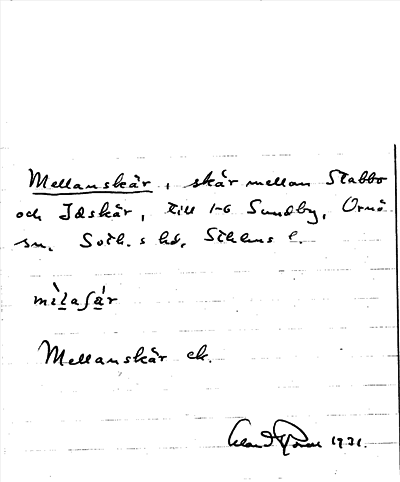 Mellanskär, skär mellan Stabbo
och Idskär, till 1-6 Sundby, Ornö
sn. Soth.s hd. Sthlms l.
mìlaʃár
Mellanskär ek.
1931.